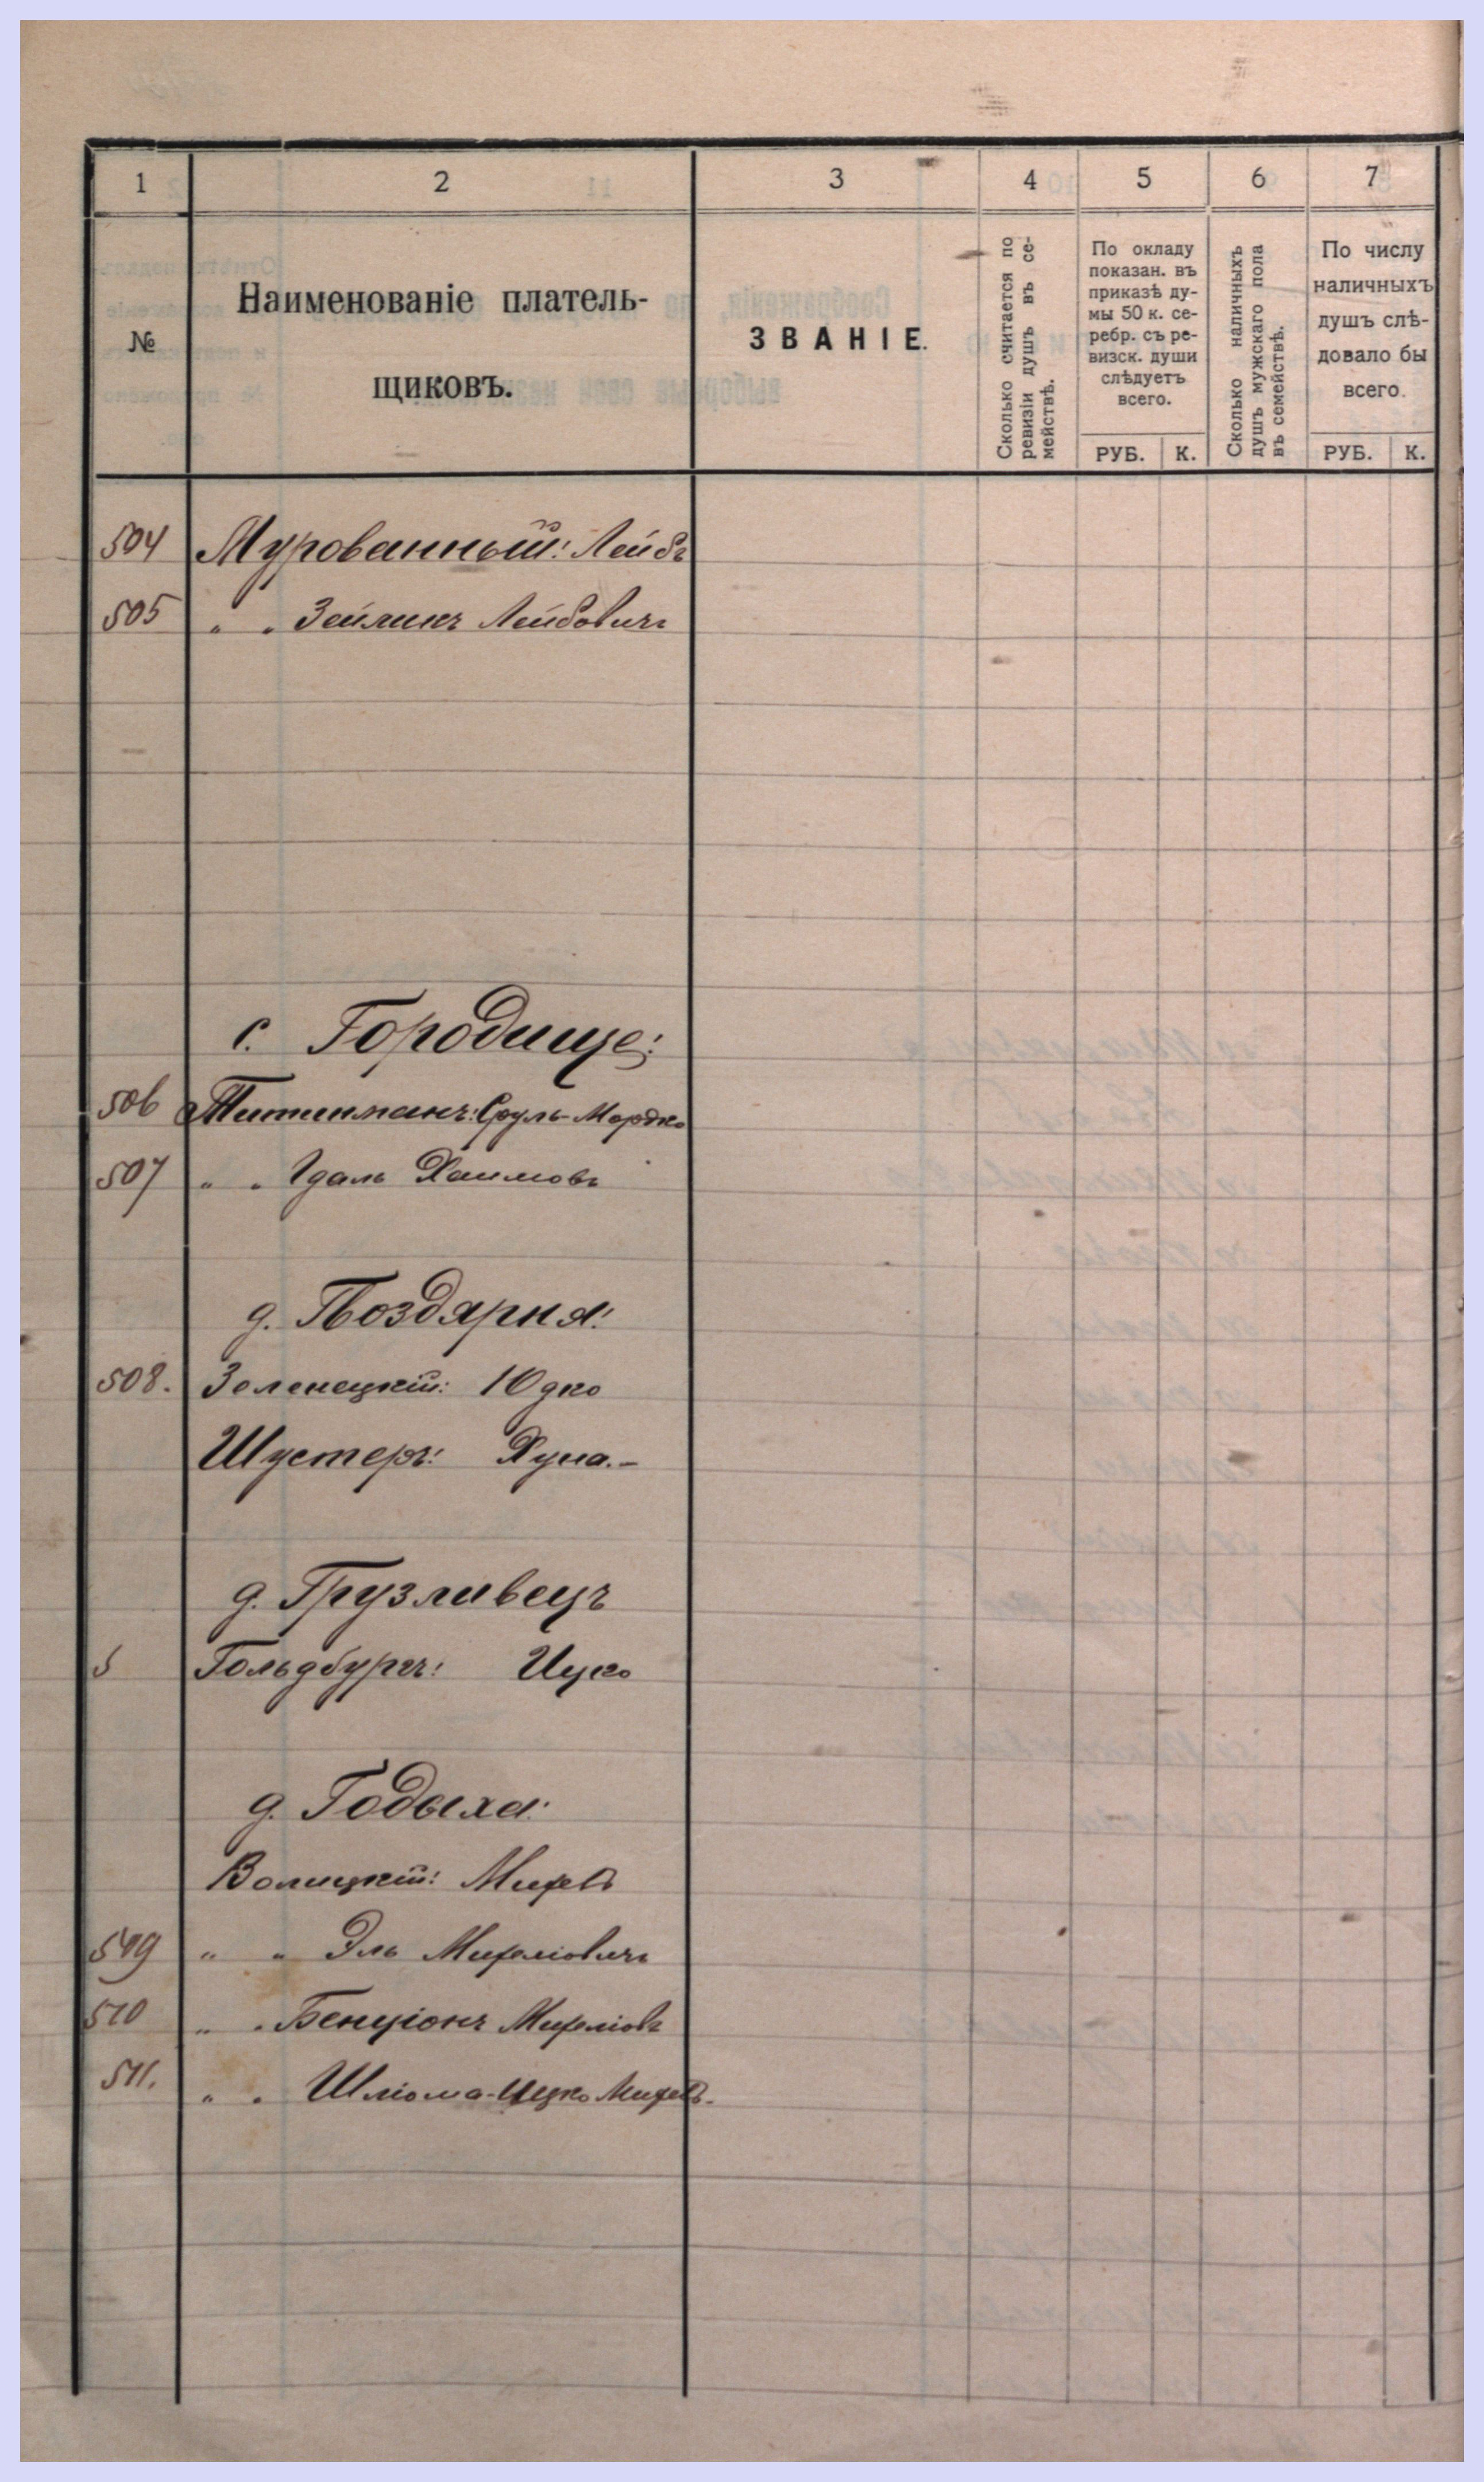 1 2 3 4 5 6 7
№
Наименованіе платель-
щиковъ.
ЗВАНІЕ.
Сколько считается по
ревизіи душъ въ се-
мействѣ.
По окладу
показан. въ
приказѣ ду-
мы 50 к. се-
ребр. съ ре-
визск. души
слѣдуетъ
всего.
РУБ. К.
Сколько наличныхъ
душъ мужскаго пола
въ семействѣ.
По числу
наличныхъ
душъ слѣ-
довало бы
всего.
РУБ. К.
504 Мурованный: Лейбъ
505 " " Зейликъ Лейбовичъ
с. Городище:
506 Титинманъ: Сруль-Мордко
507 " " Гдаль Хаимовъ
д. Гвоздярня:
508. Зеленецкій: Юдко
Шустеръ: Хуна.-
д. Грузливецъ
5 Гольдбургъ: Ицко
д. Годыха:
Волицкій: Михель
509 " " Эль Михеліовичъ
510 " " Бенціонъ Михеліовъ
511. " " Шліома-Ицко Михел.